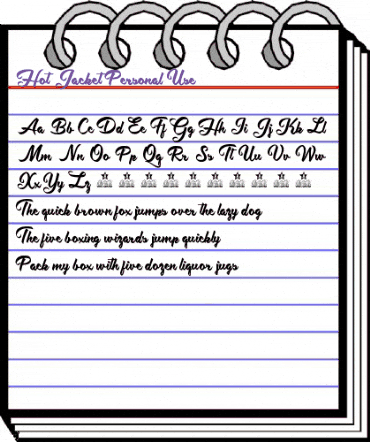 Hot Jacket Personal Use
Aa Bb Cc Dd Ee Ff Gg Hh Ii Jj Kk Ll
Mm Nn Oo Pp Qq Rr Ss Tt Uu Vv Ww
Xx Yy Zz
The quick brown fox jumps over the lazy dog
The five boxing wizards jump quickly
Pack my box with five dozen liquor jugs